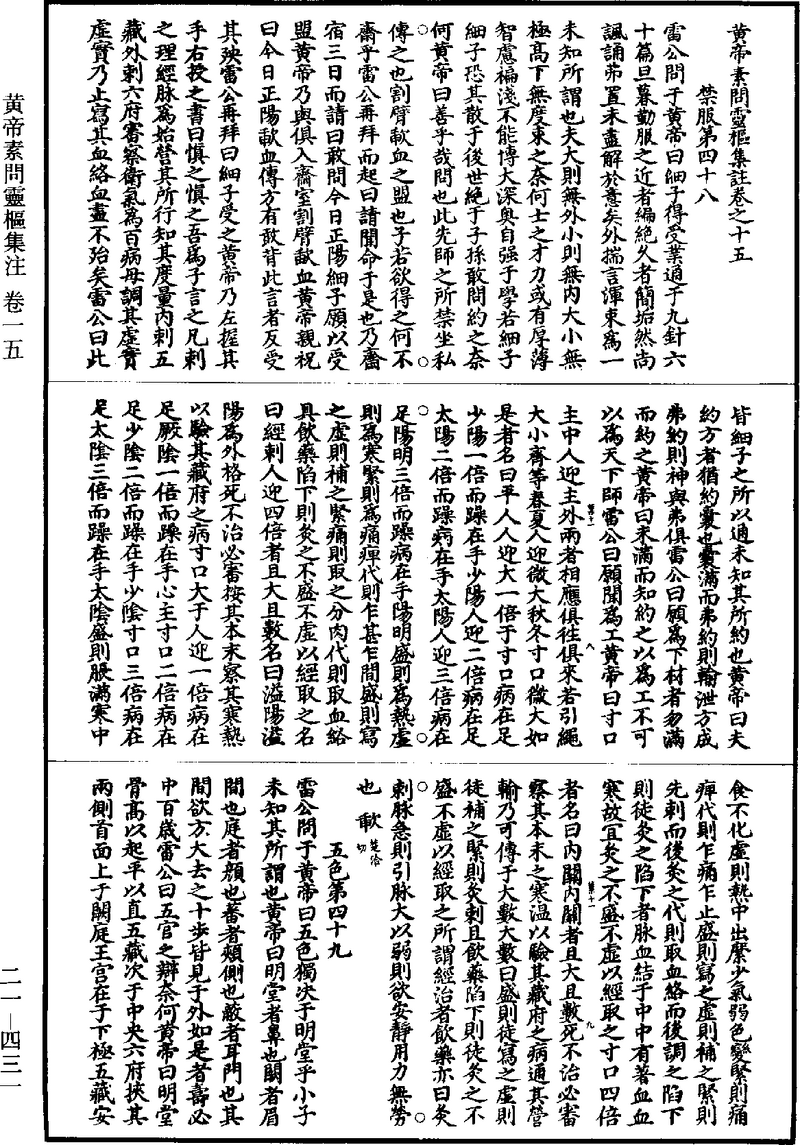 黄帝素問靈樞集注 卷一五
二一—四三一
黄帝素問靈樞集註卷之十五
禁服第四十八
雷公問于黄帝曰細子得受業通于九針六
十篇旦暮勤服之近者編絶久者簡垢然尚
諷誦弗置未盡解於意矣外揣言渾束爲一
未知所謂也夫大則無外小則無内大小無
極高下無度束之奈何士之才力或有厚薄
智慮褊淺不能博大深奥自强于學若細子
細子恐其散于後世絶于子孫敢問約之奈
何黄帝曰善乎哉問也此先師之所禁坐私
傳之也割臂歃血之盟也子若欲得之何不
齋乎雷公再拜而起曰請聞命于是也乃齋
宿三日而請曰敢問今日正陽細子願以受
盟黄帝乃與俱入齋室割臂歃血黄帝親祝
曰今日正陽歃血傳方有敢背此言者反受
其殃雷公再拜曰細子受之黄帝乃左握其
手右授之書曰慎之慎之吾爲子言之凡刺
之理經脉爲始營其所行知其度量内刺五
藏外刺六府審察衛氣爲百病母調其虚實
虚實乃止寫其血絡血盡不殆矣雷公曰此
皆細子之所以通未知其所約也黄帝曰夫
約方者猶約囊也囊滿而弗約則輸泄方成
弗約則神與弗俱雷公曰願爲下材者勿滿
而約之黄帝曰未滿而知約之以爲工不可
以爲天下師雷公曰願聞爲工黄帝曰寸口
主中人迎主外兩者相應俱往俱來若引繩
大小齊等春夏人迎微大秋冬寸口微大如
是者名曰平人人迎大一倍于寸口病在足
少陽一倍而躁在手少陽人迎二倍病在足
太陽二倍而躁病在手太陽人迎三倍病在
足陽明三倍而躁病在手陽明盛則爲熱虚
則爲寒緊則爲痛痺代則乍甚乍間盛則寫
之虚則補之緊痛則取之分肉代則取血絡
具飲藥陷下則灸之不盛不虚以經取之名
曰經刺人迎四倍者且大且數名曰溢陽溢
陽爲外格死不治必審按其本末察其寒熱
以驗其藏府之病寸口大于人迎一倍病在
足厥陰一倍而躁在手心主寸口二倍病在
足少陰二倍而躁在手少陰寸口三倍病在
足太陰三倍而躁在手太陰盛則脹滿寒中
食不化虚則熱中出縻少氣弱色變緊則痛
痺代則乍痛乍止盛則寫之虚則補之緊則
先刺而後灸之代則取血絡而後調之陷下
則徒灸之陷下者脉血結于中中有著血血
寒故宜灸之不盛不虚以經取之寸口四倍
者名曰内關内關者且大且數死不治必審
察其本末之寒温以驗其藏府之病通其營
輸乃可傳于大數大數曰盛則徒寫之虚則
徒補之緊則灸刺且飲藥陷下則徒灸之不
盛不虚以經取之所謂經治者飲藥亦曰灸
刺脉急則引脉大以弱則欲安静用力無勞
也 歃
五色第四十九
雷公問于黄帝曰五色獨决于明堂乎小子
未知其所謂也黄帝曰明堂者鼻也闕者眉
間也庭者顔也蕃者頰側也蔽者耳門也其
間欲方大去之十歩皆見于外如是者壽必
中百歳雷公曰五官之辯奈何黄帝曰明堂
骨高以起平以直五藏次于中央六府挾其
兩側首面上于闕庭王宫在于下極五藏安